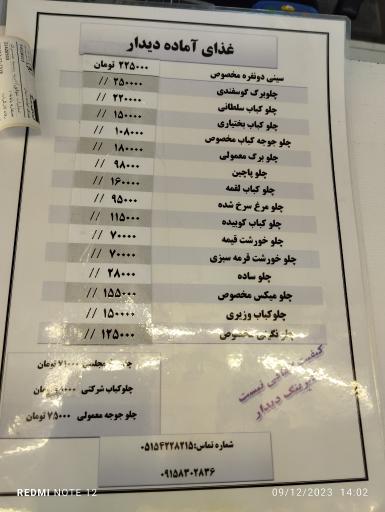 غذای آماده دیدار
سینی دونفره مخصوص ۲۲۵۰۰۰ تومان
چلوبرگ گوسفندی ۲۵۰۰۰۰ //
چلو کباب سلطانی ۲۲۰۰۰۰ //
چلو کباب بختیاری ۱۵۰۰۰۰ //
چلو جوجه کباب مخصوص ۱۰۸۰۰۰ //
چلو برگ معمولی ۱۸۰۰۰۰ //
چلو پاچین ۹۸۰۰۰ //
چلو کباب لقمه ۱۶۰۰۰۰ //
چلو مرغ سرخ شده ۹۵۰۰۰ //
چلو کباب کوبیده ۱۱۵۰۰۰ //
چلو خورشت قیمه ۷۰۰۰۰ //
چلو خورشت قرمه سبزی ۷۰۰۰۰ //
چلو ساده ۲۸۰۰۰ //
چلو میکس مخصوص ۱۵۵۰۰۰ //
چلوکباب وزیری ۱۵۰۰۰۰ //
چلو نگینی مخصوص ۱۲۵۰۰۰ //
مجلسی ۷۱۰۰۰ تومان
چلوکباب شرکتی تومان
چلو جوجه معمولی ۷۵۰۰۰ تومان
کیفیت نیست
دیدار
شماره تماس:۰۵۱۵۴۲۲۸۲۱۵
۰۹۱۵۸۳۰۲۸۳۶
REDMI NOTE 12
09/12/2023 14:02